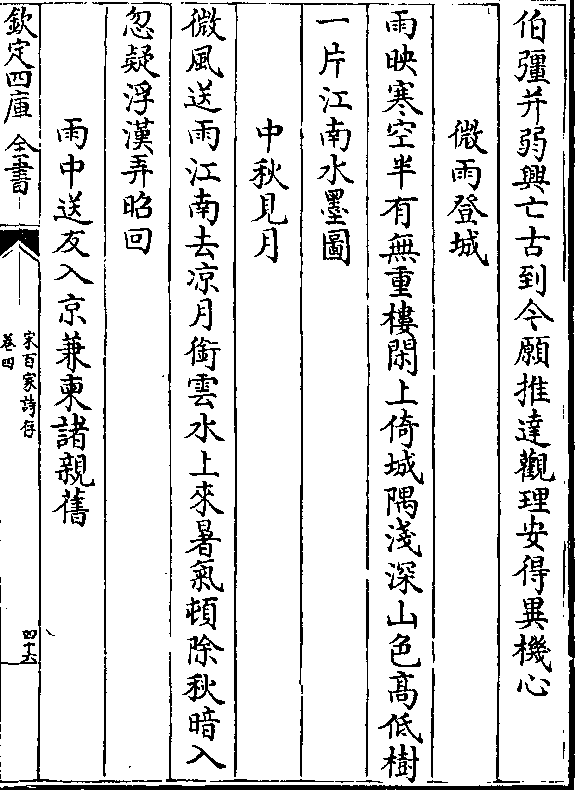 伯彊并弱興亡古到今願推達觀理安得異機心
微雨登城
雨映寒空半有無重樓閑上倚城隅淺深山色髙低樹
一片江南水墨圖
中秋見月
微風送雨江南去凉月銜雲水上來暑氣頓除秋暗入
忽疑浮漢弄昭回
雨中送友入京兼柬諸親舊
欽定四庫全書
宋百家詩存
卷四
四十六